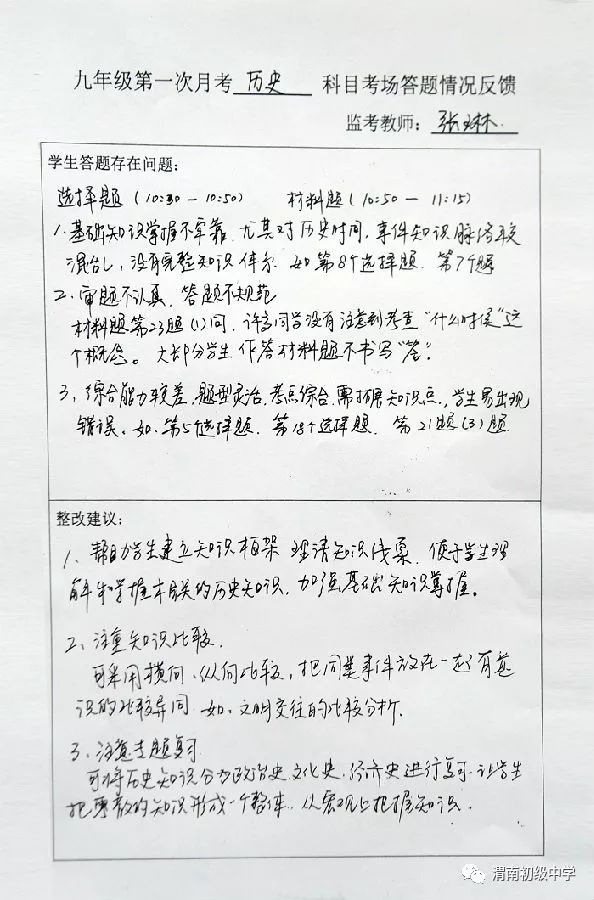 九年级第一次月考 历史 科目考场答题情况反馈
监考教师： 张琳
学生答题存在问题：
选择题（10:30 — 10:50） 材料题（10:50 — 11:15）
1. 基础知识掌握不牢靠，尤其对历史时间，事件知识脉络较
混乱，没有完整知识体系 如第8个选择题，第7个题
2. 审题不认真，答题不规范
材料题第23题(1)问，许多同学没有注意到考查“什么时候”这
个概念。大部分学生作答材料题不书写“答”.
3、综合能力较差，题型灵活，考点综合，需拓展知识点，学生易出现
错误。如，第5个选择题，第18个选择题，第21题(3)题
整改建议：
1、帮助学生建立知识框架 理清知识线索，便于学生理
解和掌握相关的历史知识，加强基础知识掌握。
2、注重知识比较.
可采用横向、纵向比较，把同类事件放在一起有意
识的比较异同 如、文明交往的比较分析.
3、注意专题复习
可将历史知识分为政治史，文化史，经济史进行复习 让学生
把零散的知识形成一个整体，从宏观上把握知识.
渭南初级中学